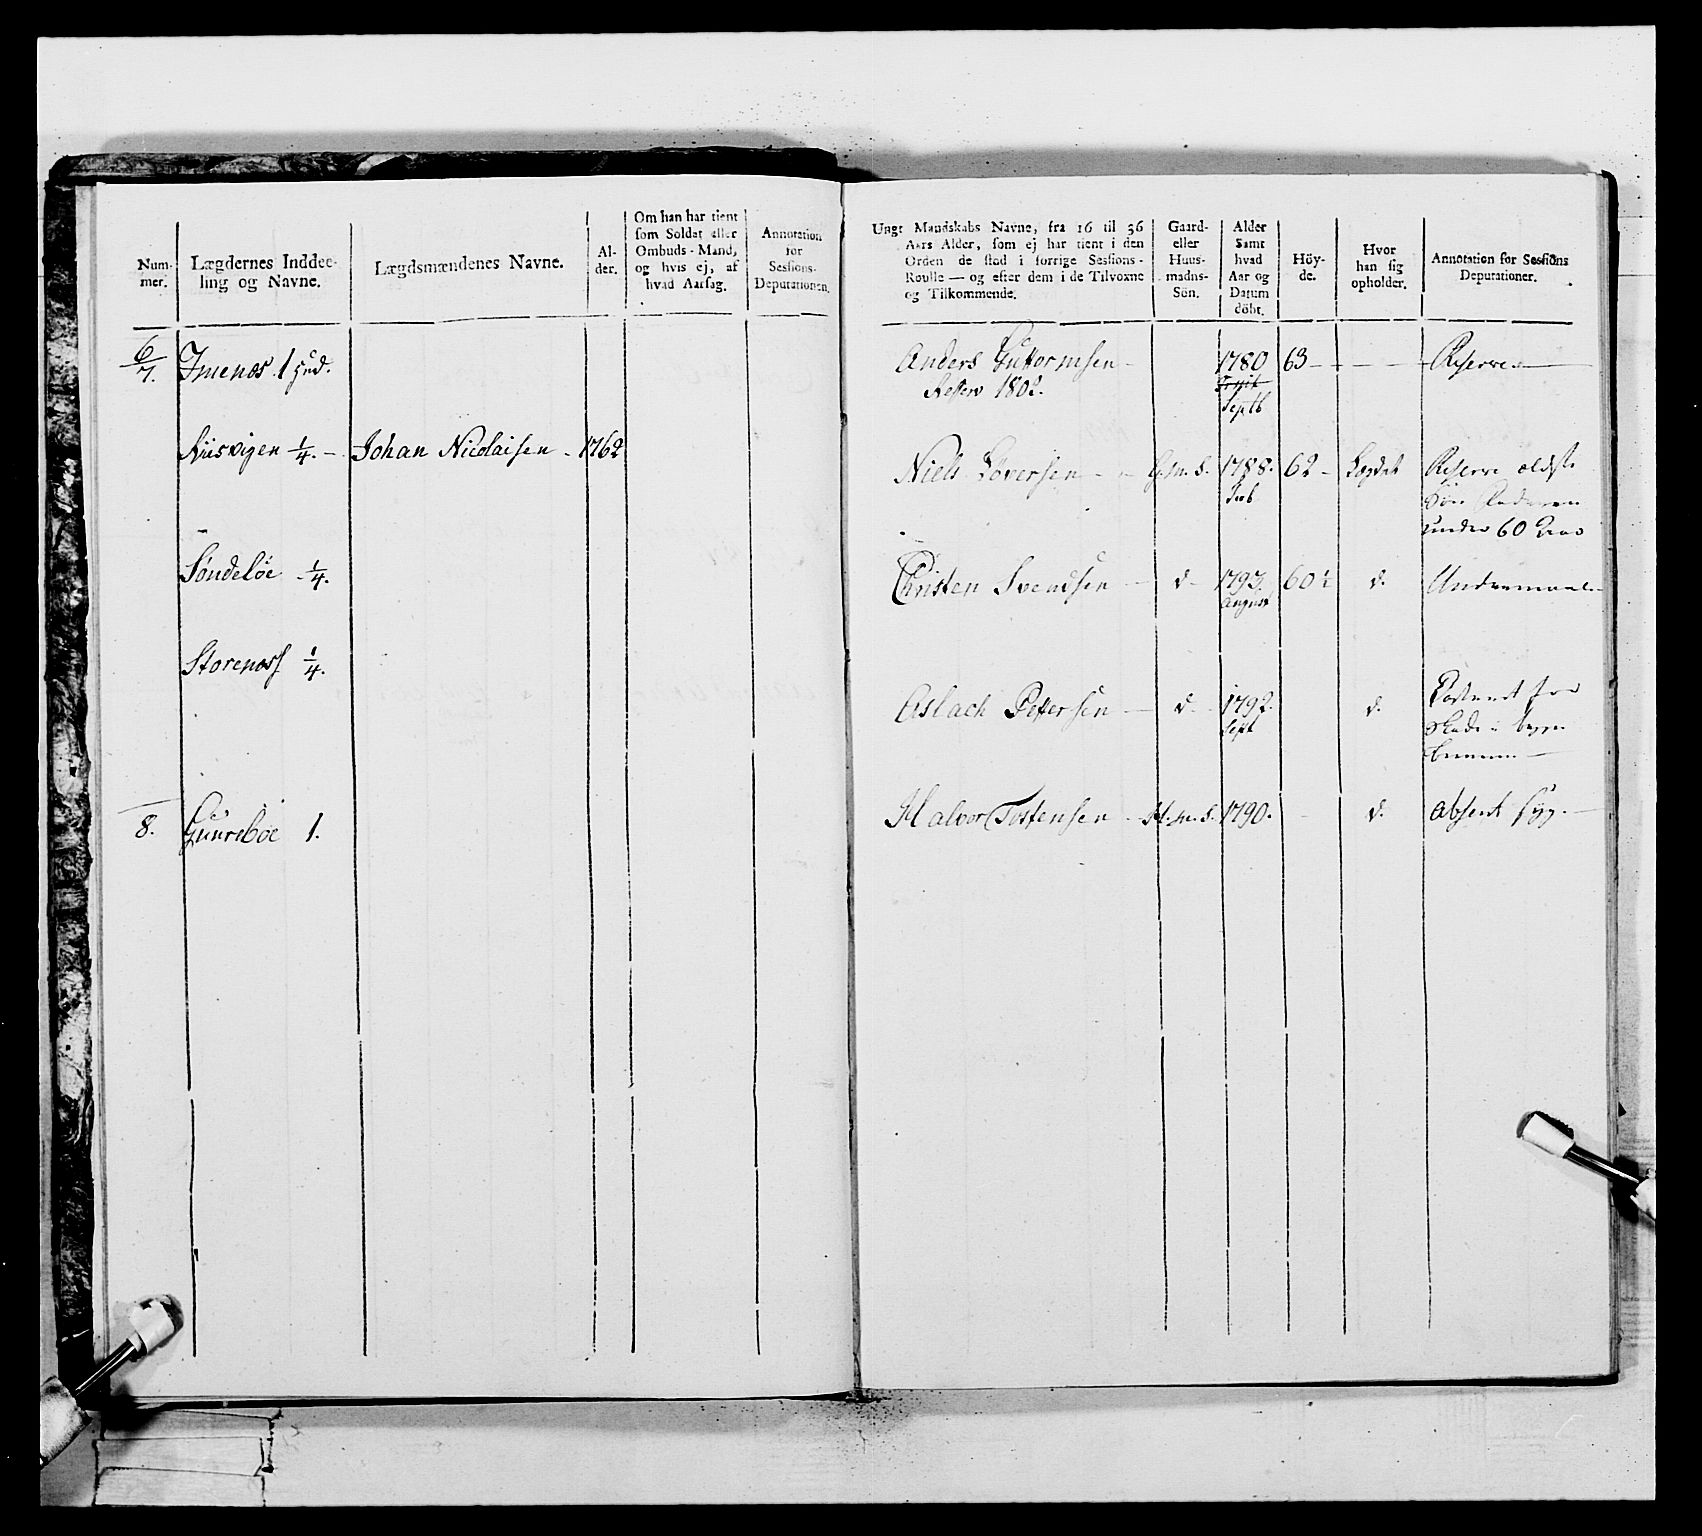 Num-
mer.
Lægdernes Inddee-
ling og Navne.
Lægdsmændenes Navne.
Al-
der.
Om han har tient
som Soldat eller
Ombuds-Mand,
og hvis ej, af
hvad Aarsag.
Annotation
for
Sessions-
Deputationen.
6/7. Imenæs 1 Hud.
Riisvigen 1/4. - Johan Nicolaisen - 1762
Søndeløe 1/4.
Storenæss 1/4
8. 1.
Ungt Mandskabs Navne, fra 16 til 36
Aars Alder, som ej har tient i den
Orden de stod i forrige Sessions-
Roulle — og efter dem i de Tilvoxne
og Tilkommende.
Gaard-
eller
Huus-
mands-
Søn.
Alder
samt
hvad
Aar og
Datum
döbt.
Höy-
de.
Hvor
han sig
opholder.
Annotation for Sessions
Deputationer.
Anders Guttormsen - 1780 63 - Reserve
Reserv 1802.
Septb
Niels - G.m.S. 1788. 62 - Lægdet Reserve ældste
Søn
under 60 Aar
Christen Svendsen - d - 1793. 60 d. Undermaal
August
Aslach Pettersen - d - 1792. d.
Sept
Halvor Tostensen - H.m.S. 1790. d. absent syg.